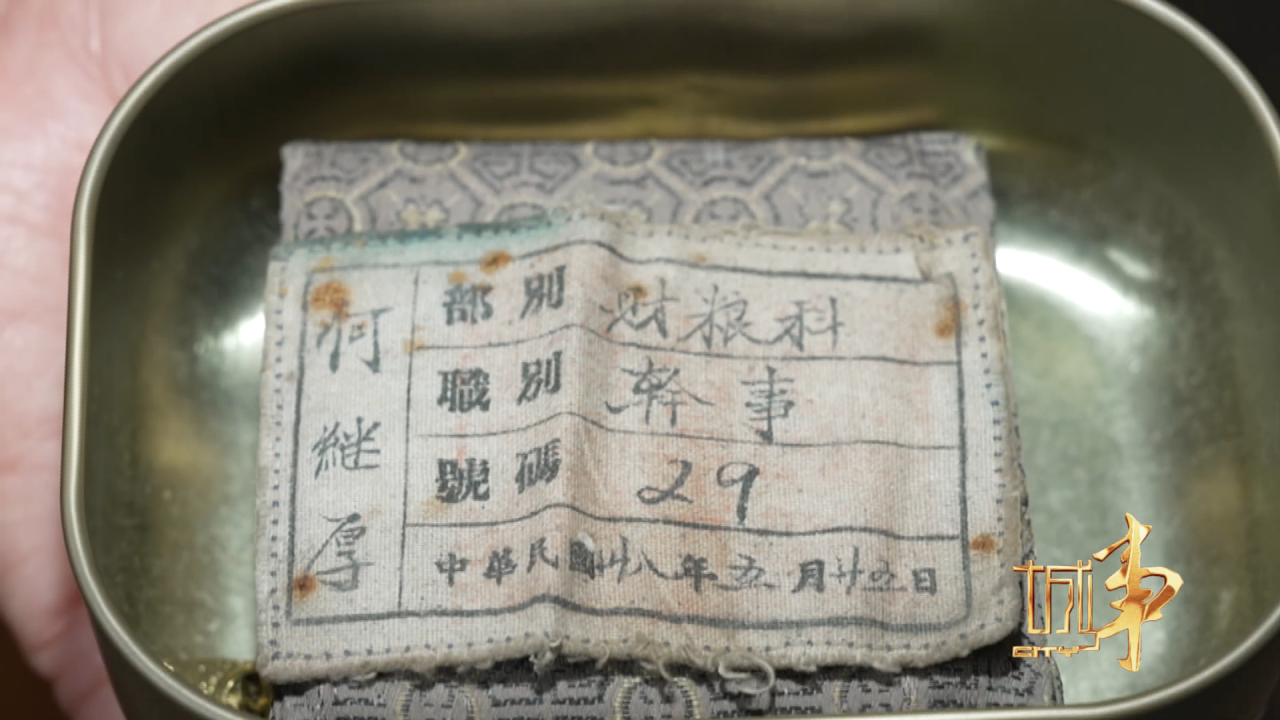 何継厚
部別 财粮科
職別 幹事
號碼 29
中華民國卅八年五月廿五日
城事
CITY